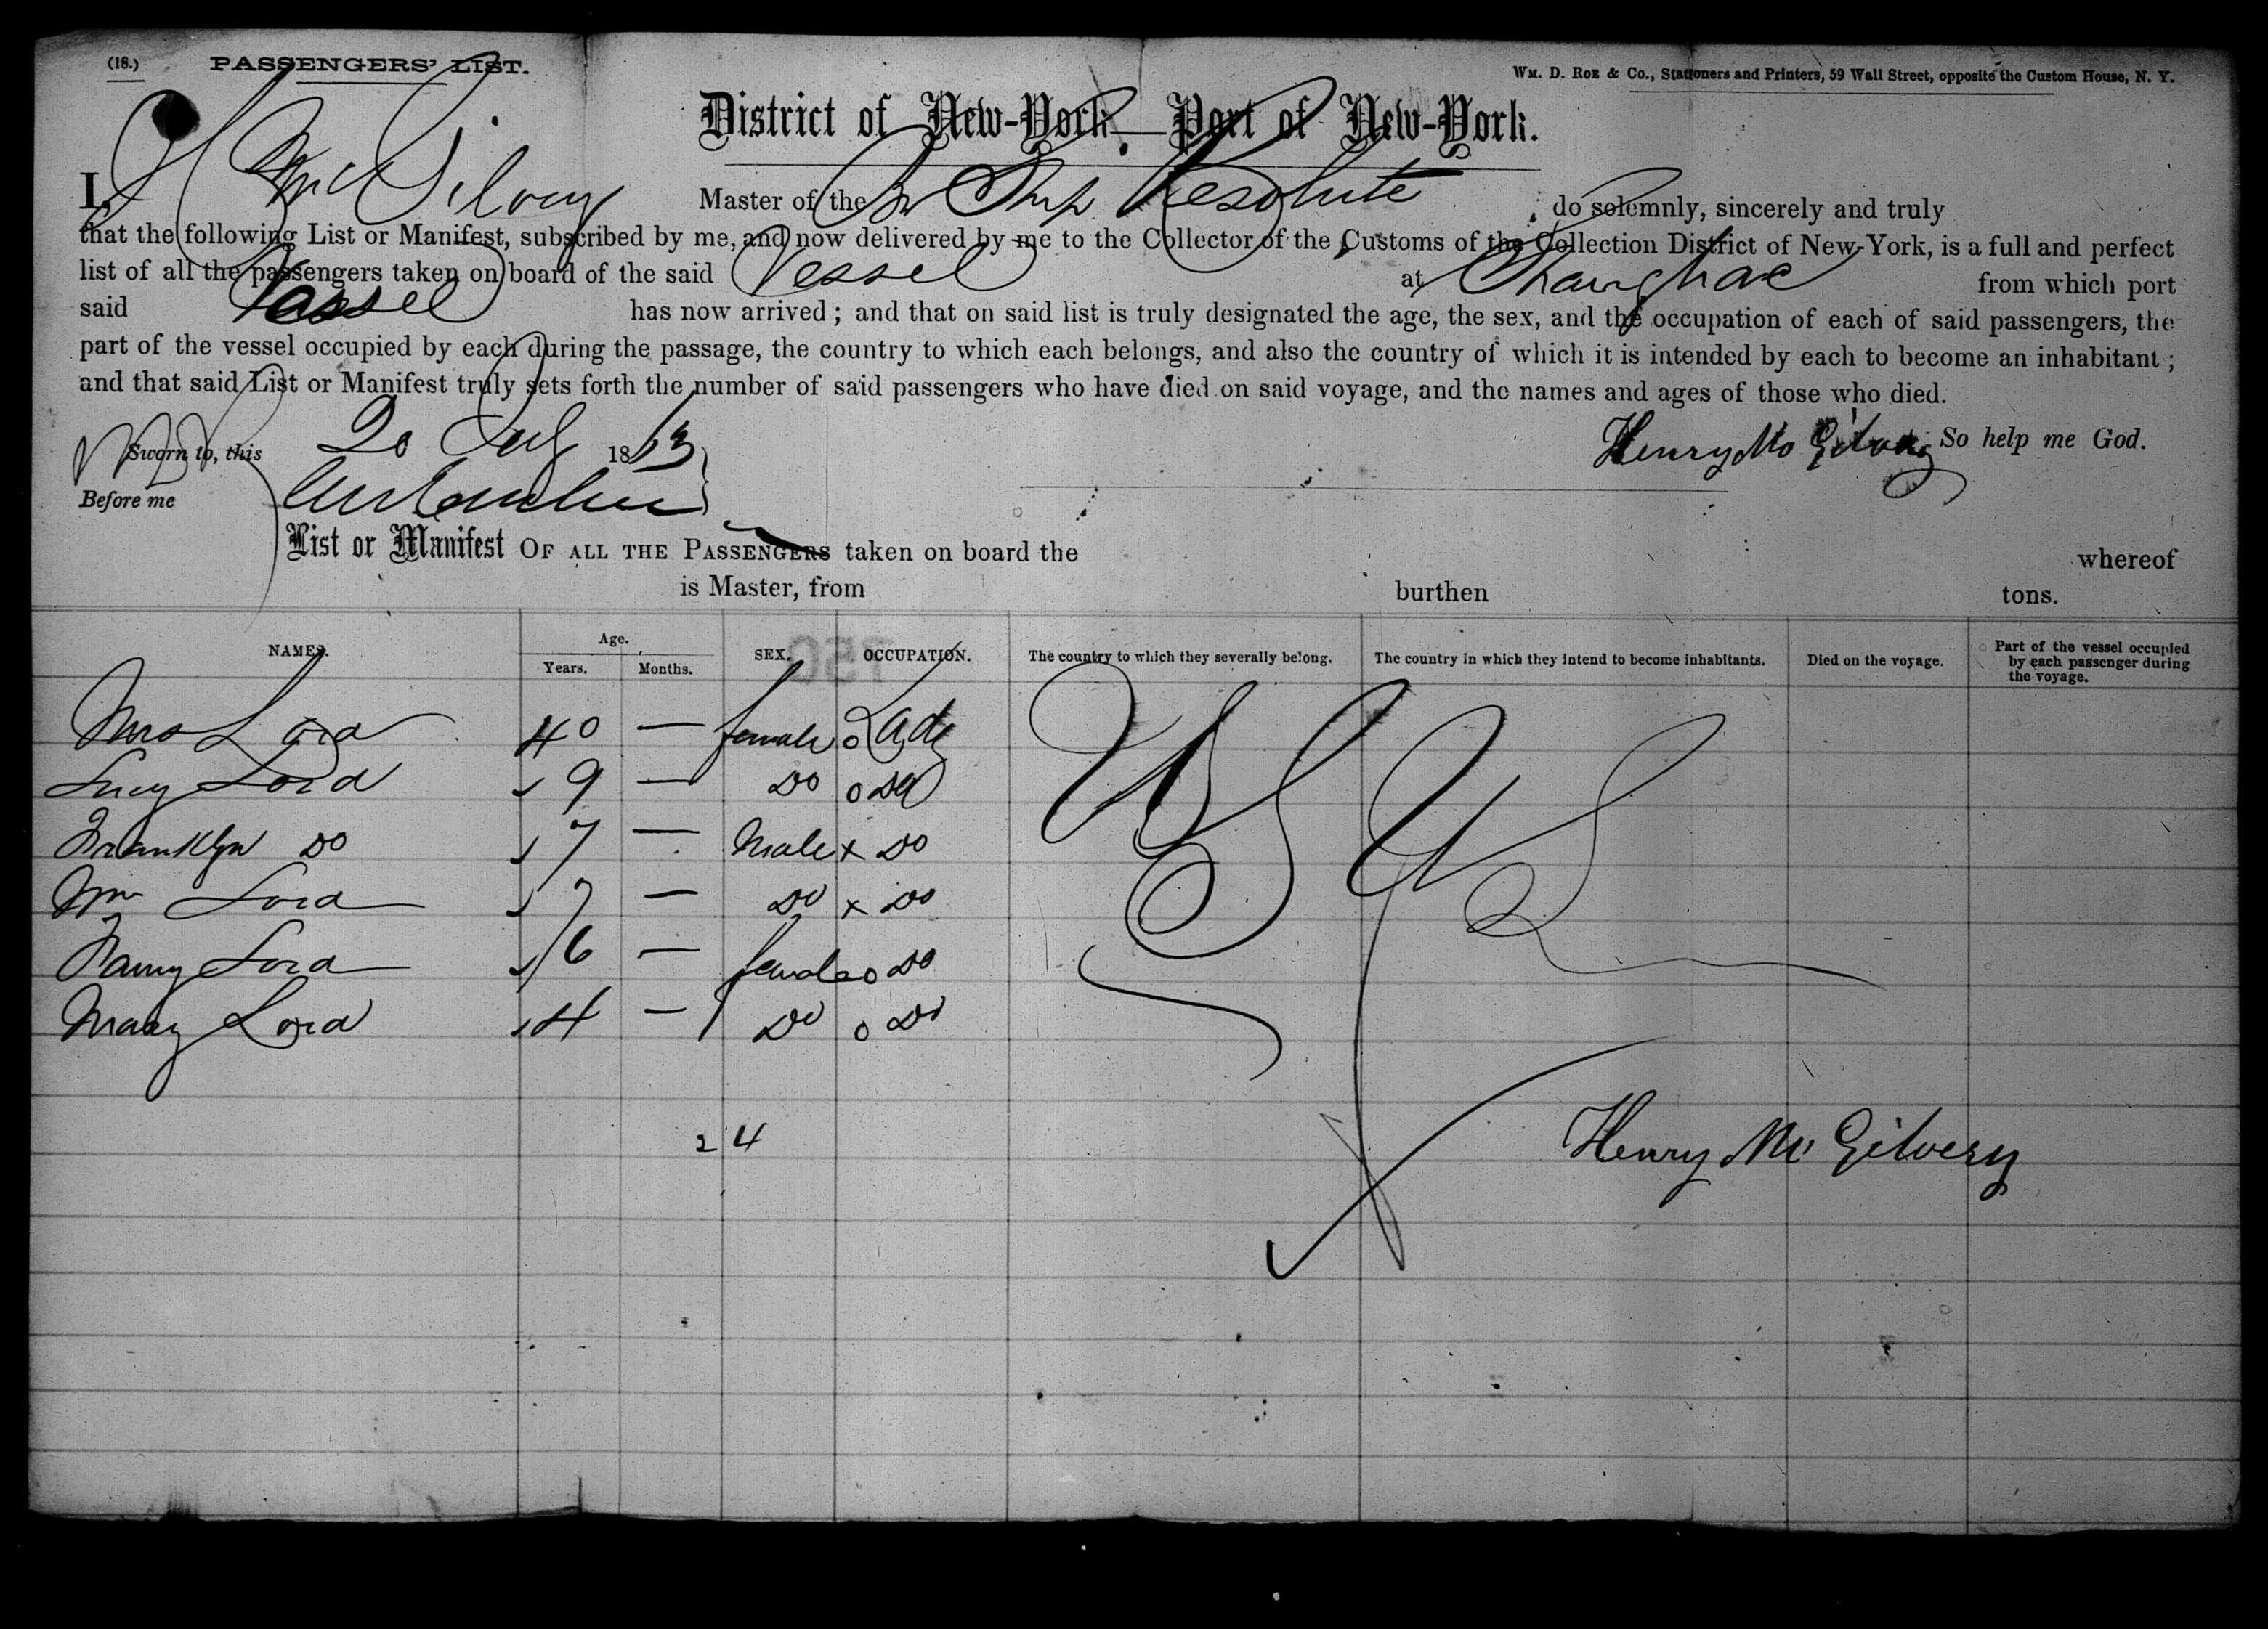 (18.) PASSENGERS' LIST.
WM. D. ROE & Co., Stationers and Printers, 59 Wall Street, opposite the Custom House, N. Y.
District of New-York—Port of New-York.
I, H McGilvery Master of the Br Ship Resolute do solemnly, sincerely and truly
that the following List or Manifest, subscribed by me, and now delivered by me to the Collector of the Customs of the Collection District of New-York, is a full and perfect
list of all the passengers taken on board of the said Vessel at Shanghae from which port
said Vessel has now arrived; and that on said list is truly designated the age, the sex, and the occupation of each of said passengers, the
part of the vessel occupied by each during the passage, the country to which each belongs, and also the country of which it is intended by each to become an inhabitant;
and that said List or Manifest truly sets forth the number of said passengers who have died on said voyage, and the names and ages of those who died.
Sworn to, this 20 July 1863
Henry Mc Gilvery So help me God.
Before me
List or Manifest OF ALL THE PASSENGERS taken on board the whereof
is Master, from burthen tons.
NAMES. Age. Years. Months. SEX. OCCUPATION. The country to which they severally belong. The country in which they intend to become inhabitants. Died on the voyage. Part of the vessel occupied by each passenger during the voyage.
Mrs Lord 40 — female o Lady U S U S
Lucy Lord 9 — Do o Do
Franklyn Do 7 — Male x Do
Wm Lord 7 — Do x Do
Fanny Lord 6 — female o Do
Mary Lord 4 — Do o Do
2 4
Henry Mc Gilvery